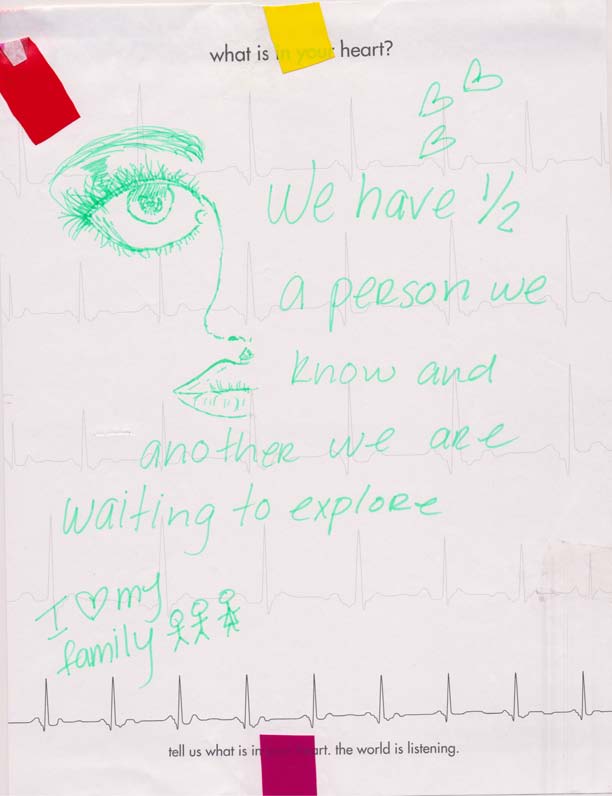 what is in your heart?
We have 1/2
a person we
know and
another we are
waiting to explore
I ♡ my
family
tell us what is in your heart. the world is listening.